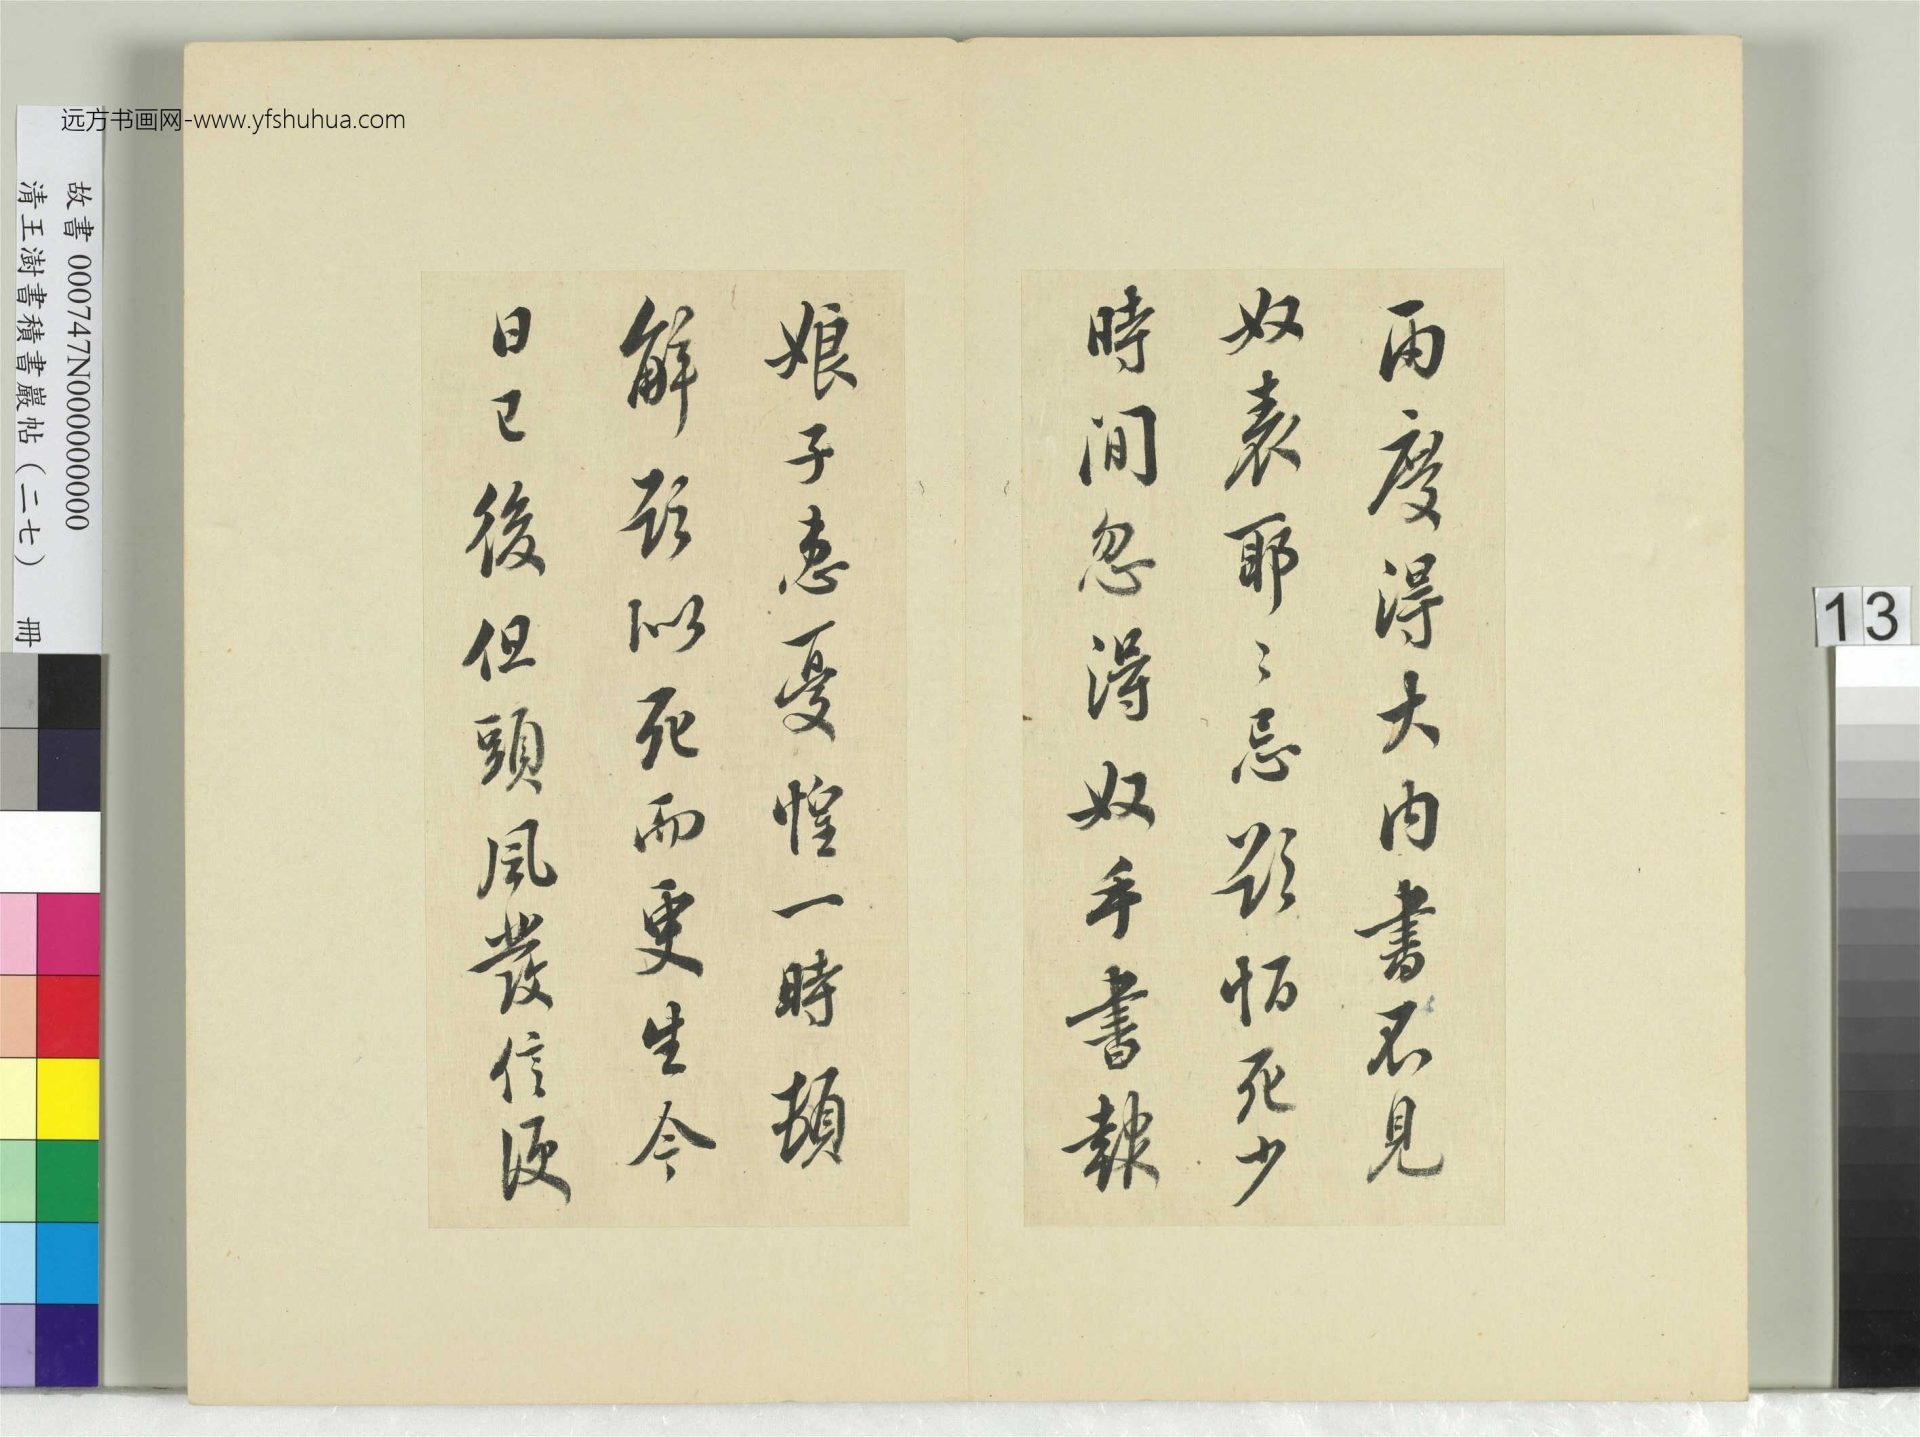 两度得大内書不見
奴表耶〻忌欲恒死少
時間忽得奴手書報
娘子患憂惶一時頓
解欲似死而更生今
日已後但頭風發信便
远方书画网-www.yfshuhua.com
故書 000747N000000000
清王澍書積書巖帖（二七） 冊
13